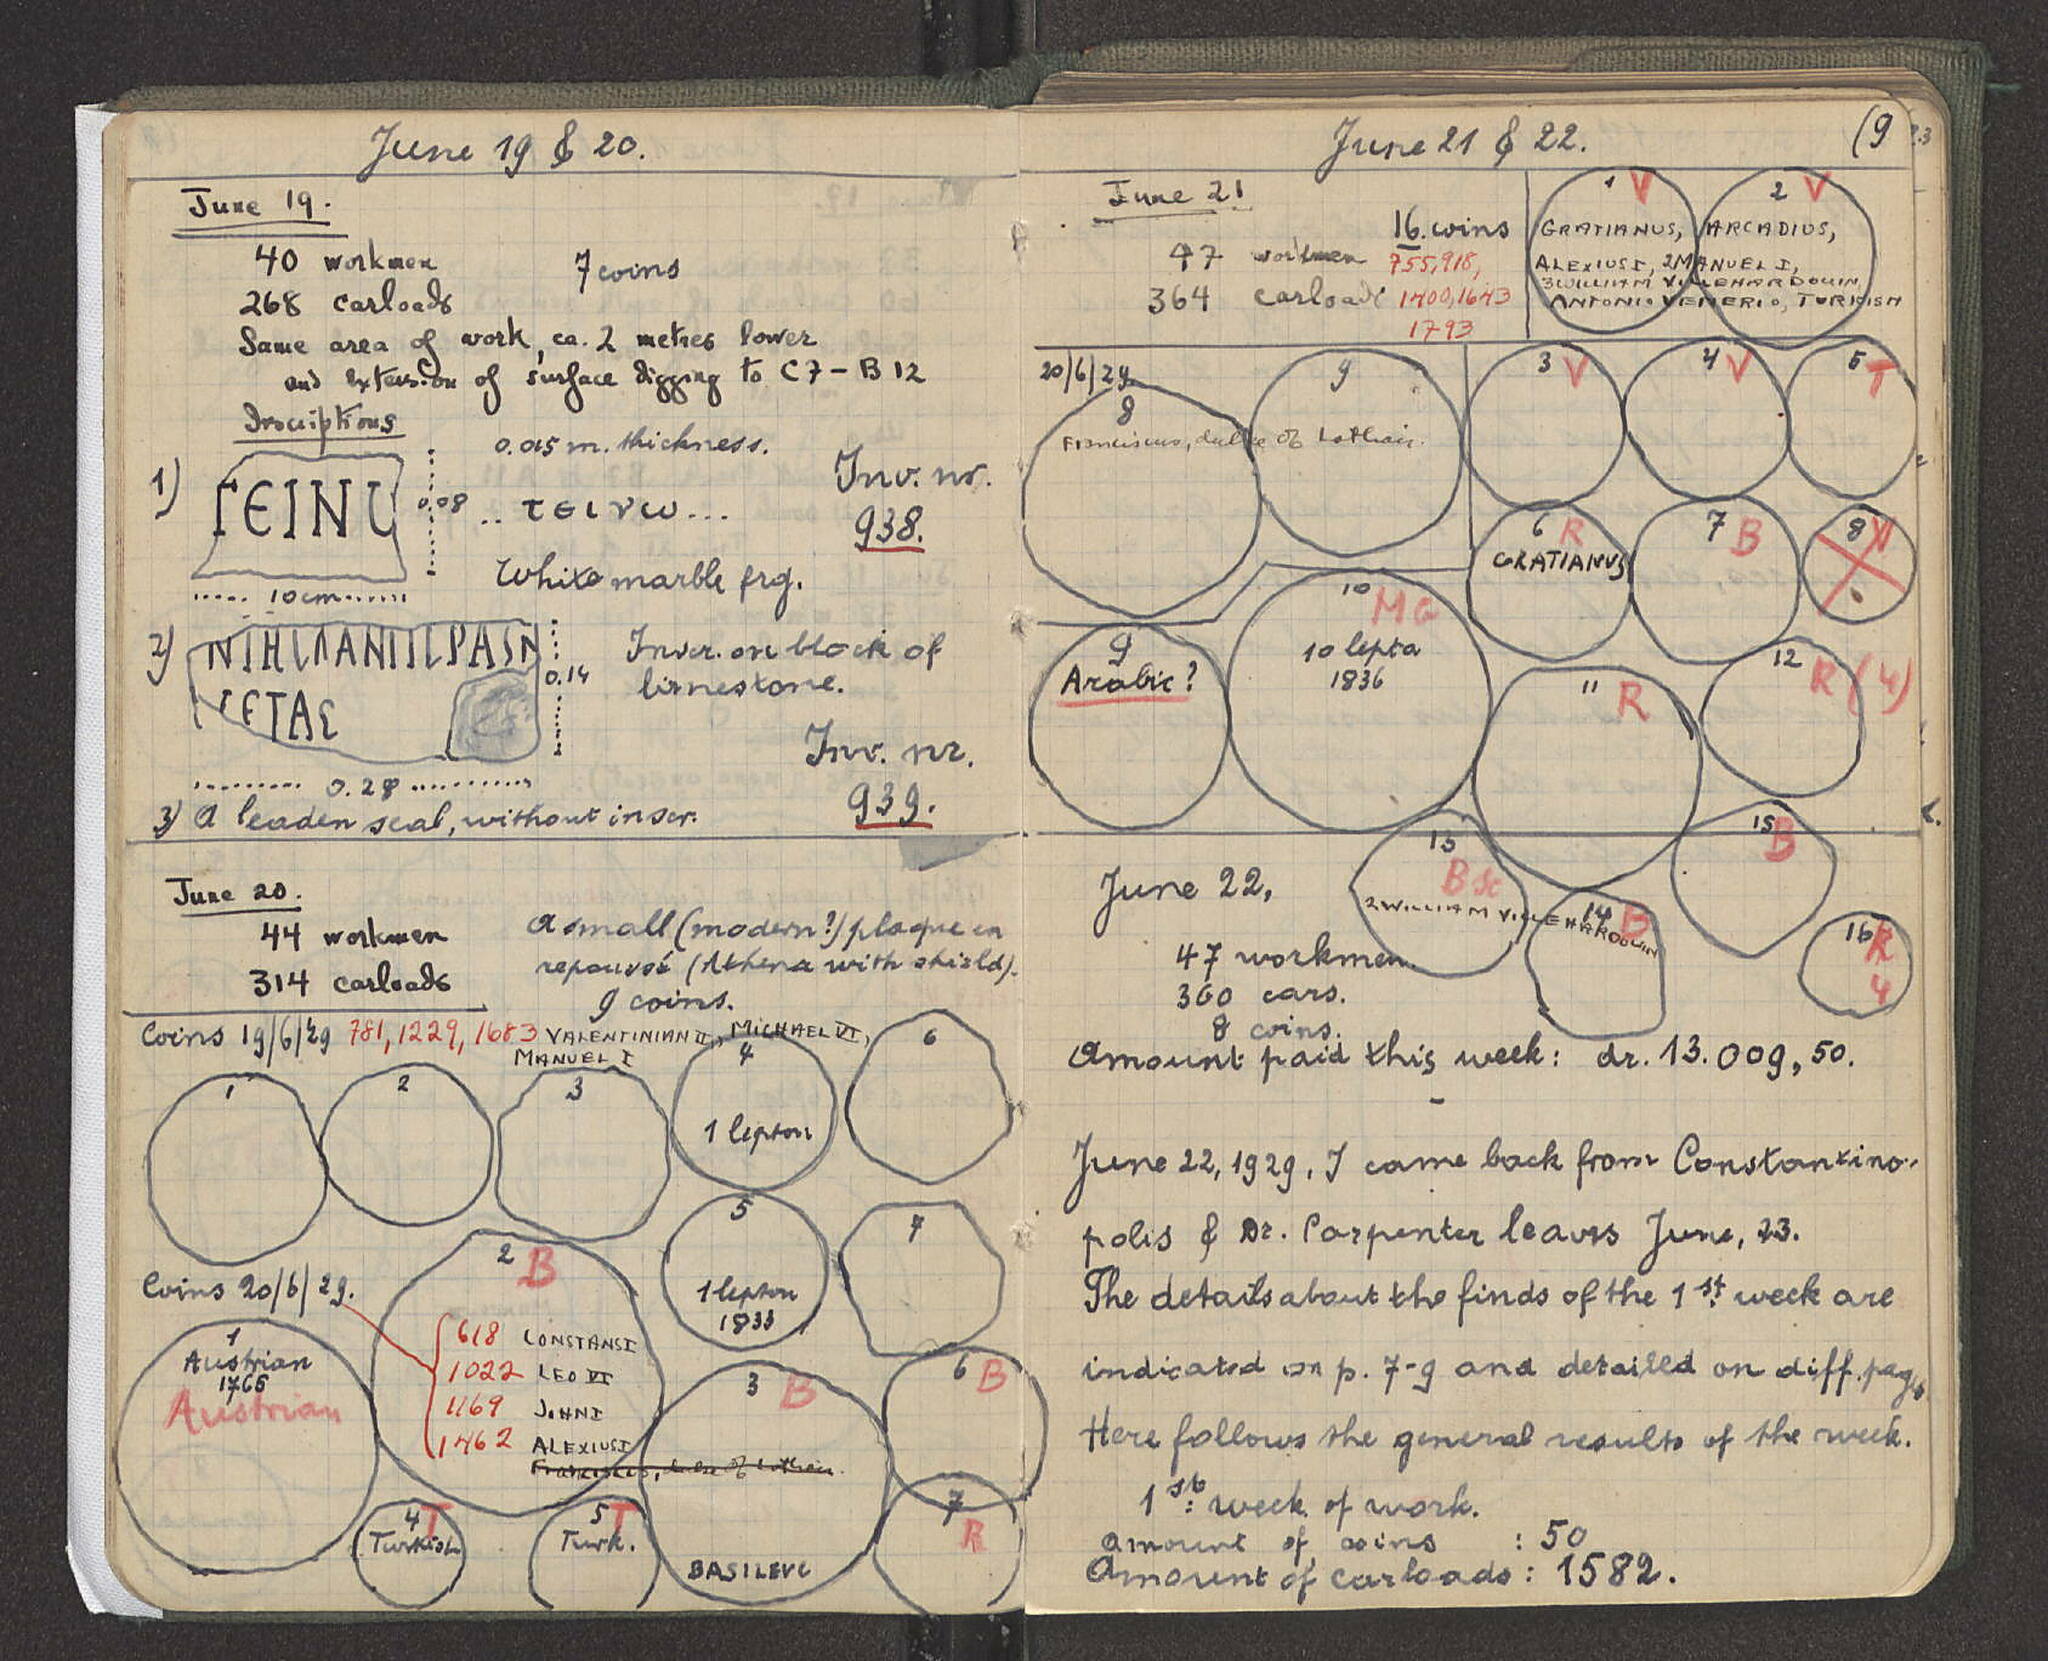 June 19 & 20.
June 19.
40 workmen
7 coins
268 carloads
Same area of work, ca. 2 metres lower
and extension of surface digging to C7 – B12
Inscriptions
0.015 m. thickness.
1)
ΓЄΙΝ
0.08
.. τεινω...
Inv. nr.
938.
White marble frg.
10 cm
2)
ΓΕΤΑΣ
0.14
Inscr. on block of
limestone.
Inv. nr.
939.
0.28
3) A leaden seal, without inscr.
June 20.
44 workmen
314 carloads
A small (modern?) plaque en
repoussé (Athena with shield).
9 coins.
Coins 19/6/29 781, 1229, 1683 VALENTINIAN II, MICHAEL VI,
MANUEL I
1
2
3
4
1 lepton
6
5
1 lepton
1833
7
Coins 20/6/29.
1
Austrian
1765
Austrian
2 B
618 CONSTANS I
1022 LEO VI
1169 JOHN I
1462 ALEXIUS I
Franciscus, duke of Lothair.
3 B
BASILEVC
4 T
Turkish
5 T
Turk.
6 B
7
R
June 21 & 22.
(9
June 21
16 coins
47 workmen 755, 918,
364 carloads 1400, 1643
1793
1 V
2 V
GRATIANUS, ARCADIUS,
ALEXIUS I, 2 MANUEL I,
3 WILLIAM VILLEHARDOUIN,
ANTONIO VENERIO, TURKISH
20/6/29
8
9
Franciscus, duke of Lothair.
3 V
4 V
5 T
6 R
GRATIANUS
7 B
8 V
9
Arabic?
10
MG
10 lepta
1836
11 R
12
R (4)
13
B Sc
2 WILLIAM VILLEHARDOUIN
14 B
15 B
16 R
4
June 22,
47 workmen
360 cars.
8 coins.
Amount paid this week: dr. 13.009,50.
June 22, 1929, I came back from Constantino-
polis & Dr. Carpenter leaves June, 23.
The details about the finds of the 1st week are
indicated on p. 7-9 and detailed on diff. pags
Here follows the general results of the week.
1st week of work.
Amount of coins : 50
Amount of carloads : 1582.